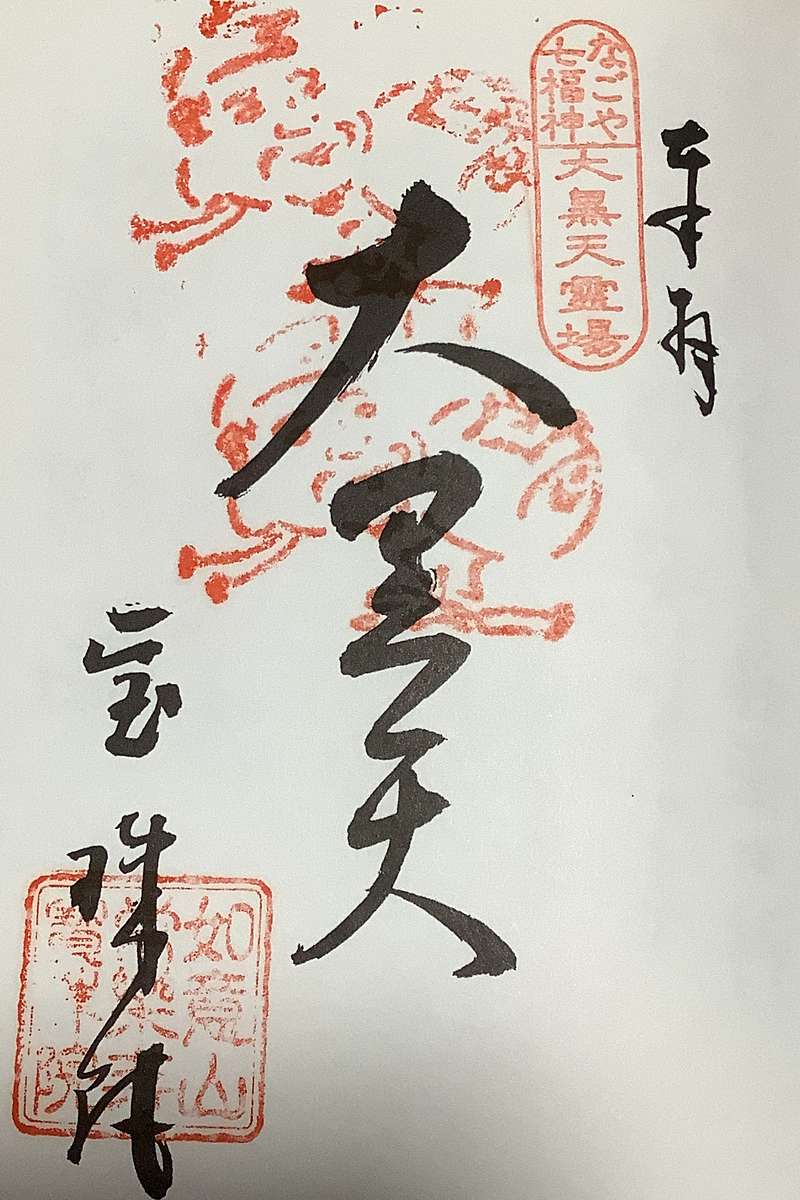 奉拝
なごや
七福神
大黒天霊場
大黒天
宝珠院
如意山
寳珠院